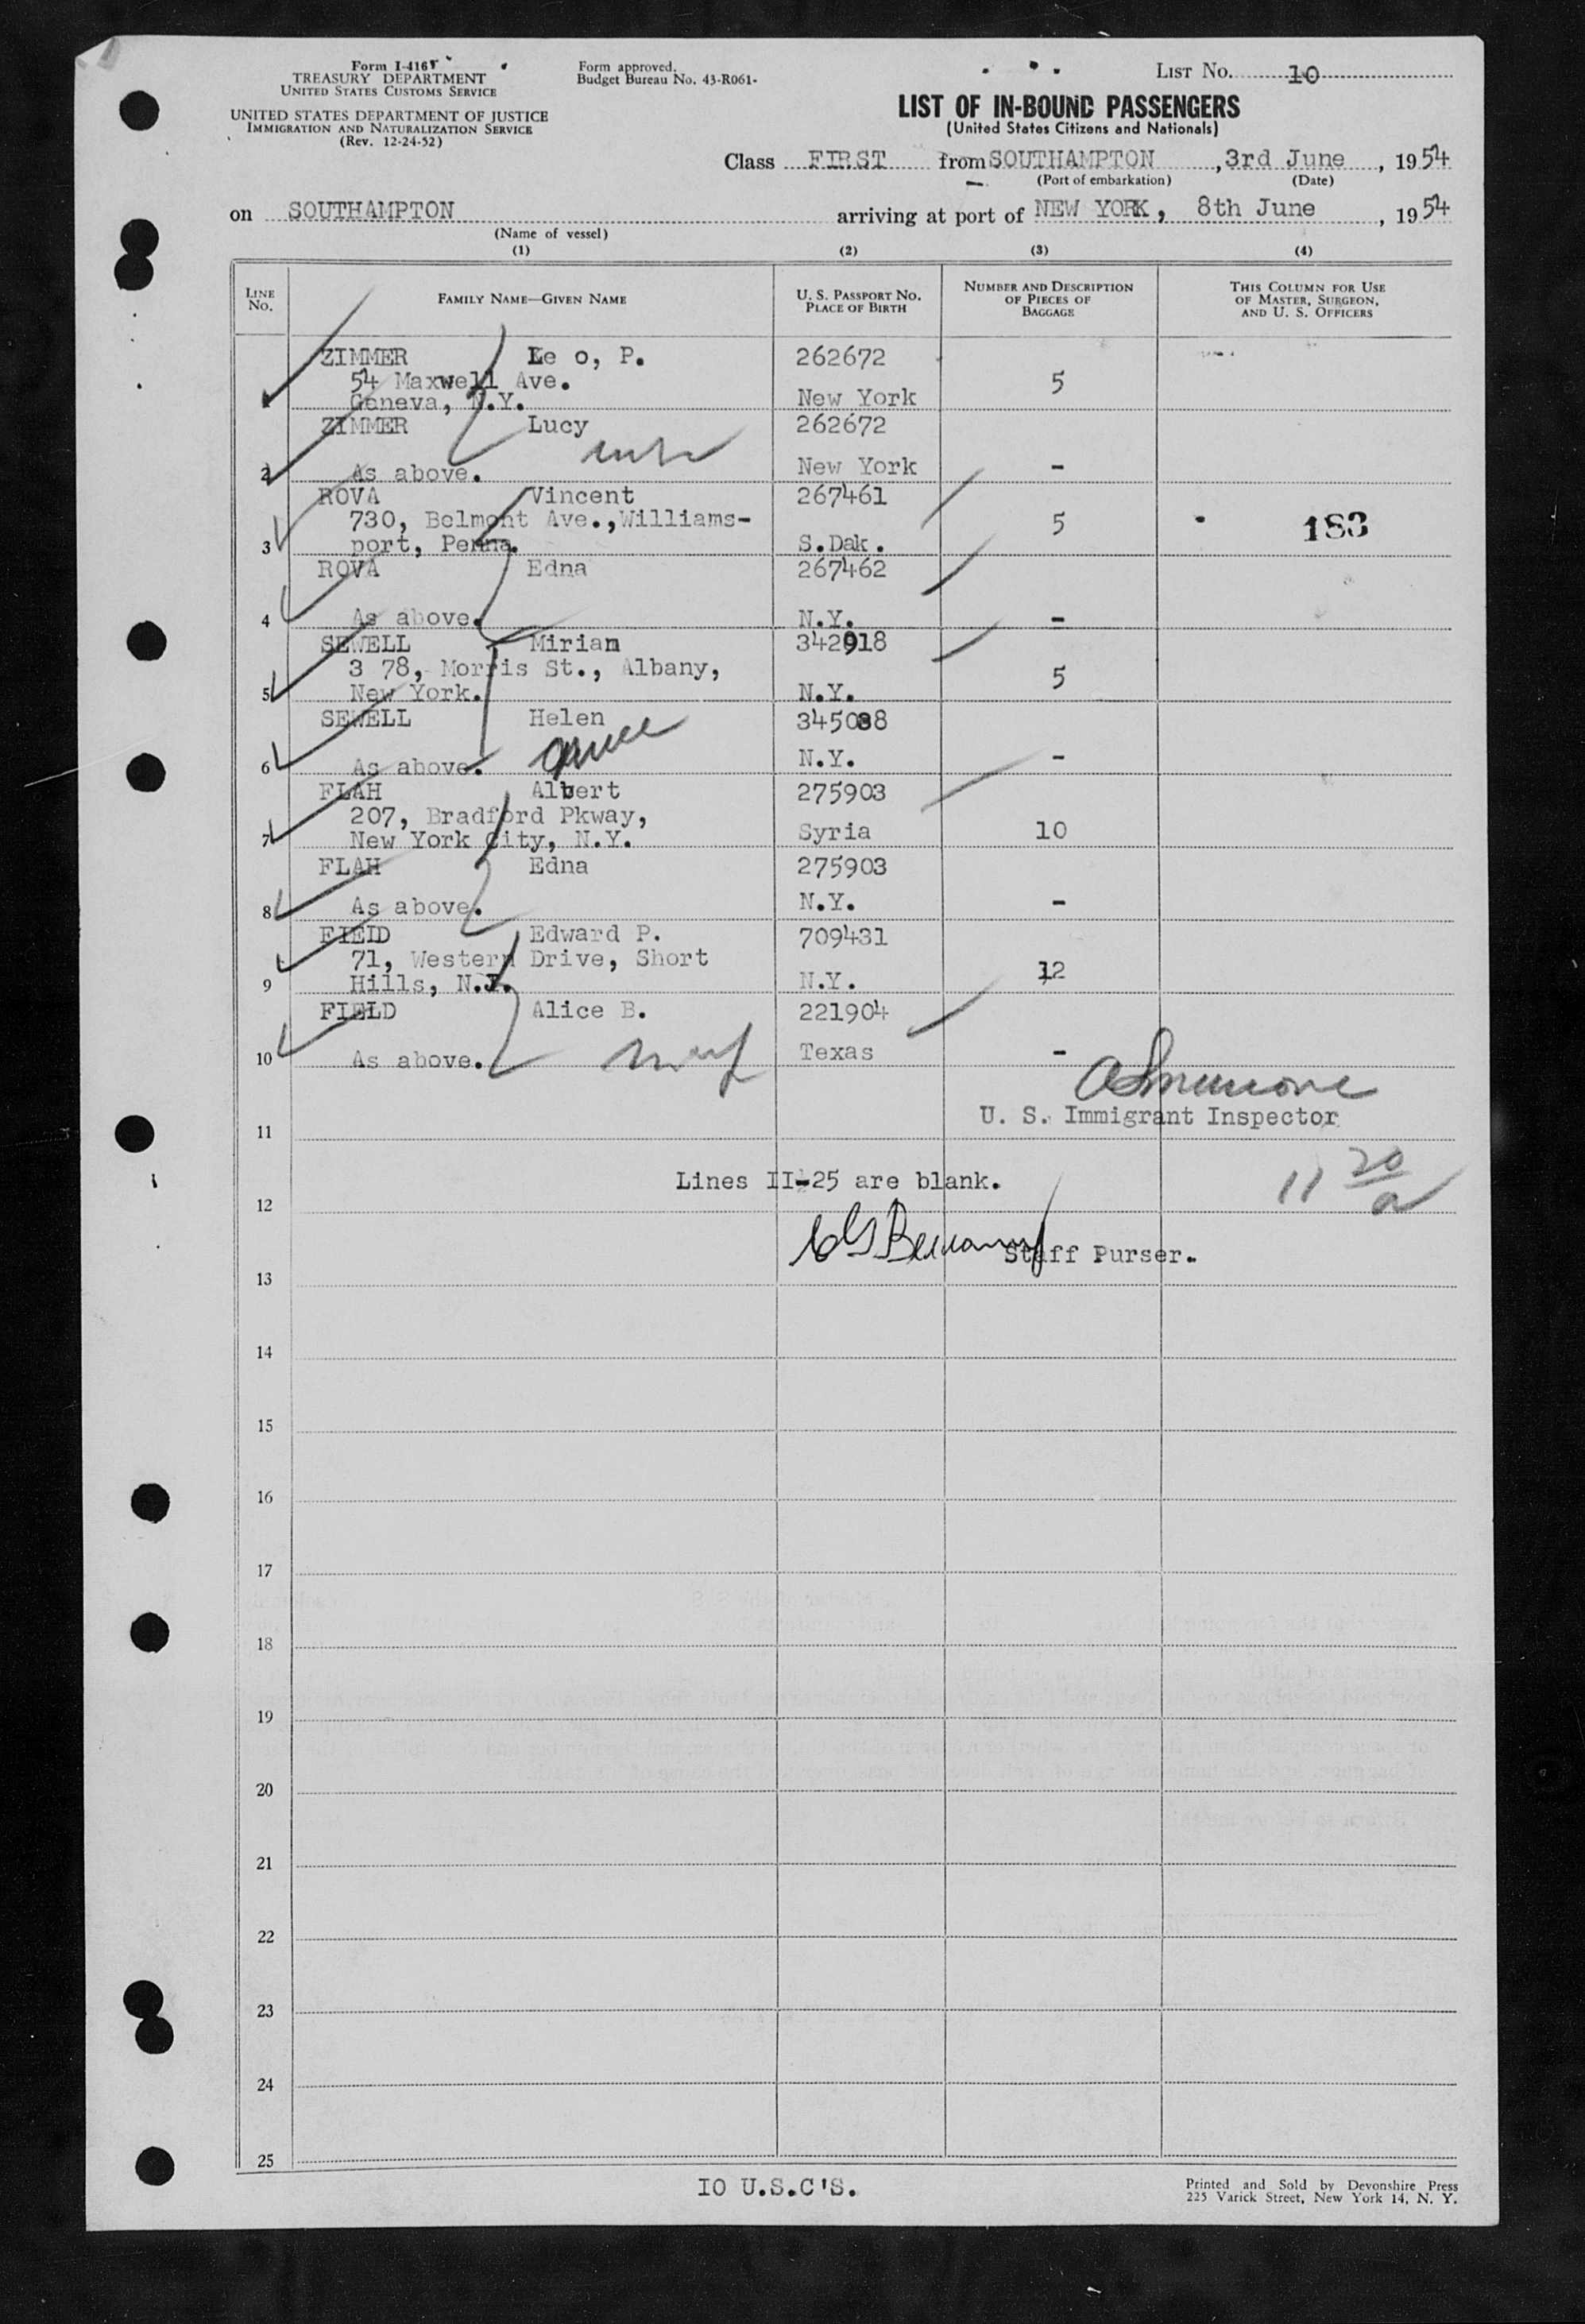 Form I-416
TREASURY DEPARTMENT
UNITED STATES CUSTOMS SERVICE
UNITED STATES DEPARTMENT OF JUSTICE
IMMIGRATION AND NATURALIZATION SERVICE
(Rev. 12-24-52)
Form approved.
Budget Bureau No. 43-R061-
LIST No. 10
LIST OF IN-BOUND PASSENGERS
(United States Citizens and Nationals)
Class FIRST from SOUTHAMPTON, 3rd June, 1954
(Port of embarkation) (Date)
on SOUTHAMPTON arriving at port of NEW YORK, 8th June, 1954
(Name of vessel)
(1) (2) (3) (4)
LINE No. FAMILY NAME—GIVEN NAME U. S. PASSPORT NO. PLACE OF BIRTH NUMBER AND DESCRIPTION OF PIECES OF BAGGAGE THIS COLUMN FOR USE OF MASTER, SURGEON, AND U. S. OFFICERS
ZIMMER Le o, P. 262672
54 Maxwell Ave. 5
1 Geneva, N.Y. New York
ZIMMER Lucy 262672
2 As above. New York -
ROVA Vincent 267461
730, Belmont Ave.,Williams- 5 183
3 port, Penna. S.Dak.
ROVA Edna 267462
4 As above. N.Y. -
SEWELL Miriam 342918
3 78, Morris St., Albany, 5
5 New York. N.Y.
SEWELL Helen 345038
6 As above. N.Y. -
FLAH Albert 275903
207, Bradford Pkway,
7 New York City, N.Y. Syria 10
FLAH Edna 275903
8 As above. N.Y. -
FIEID Edward P. 709431
71, Western Drive, Short
9 Hills, N.J. N.Y. 12
FIELD Alice B. 221904
10 As above. Texas -
U. S. Immigrant Inspector
11
Lines II-25 are blank. 11 20/a
12
Staff Purser.
13
14
15
16
17
18
19
20
21
22
23
24
25
IO U.S.C'S.
Printed and Sold by Devonshire Press
225 Varick Street, New York 14, N. Y.